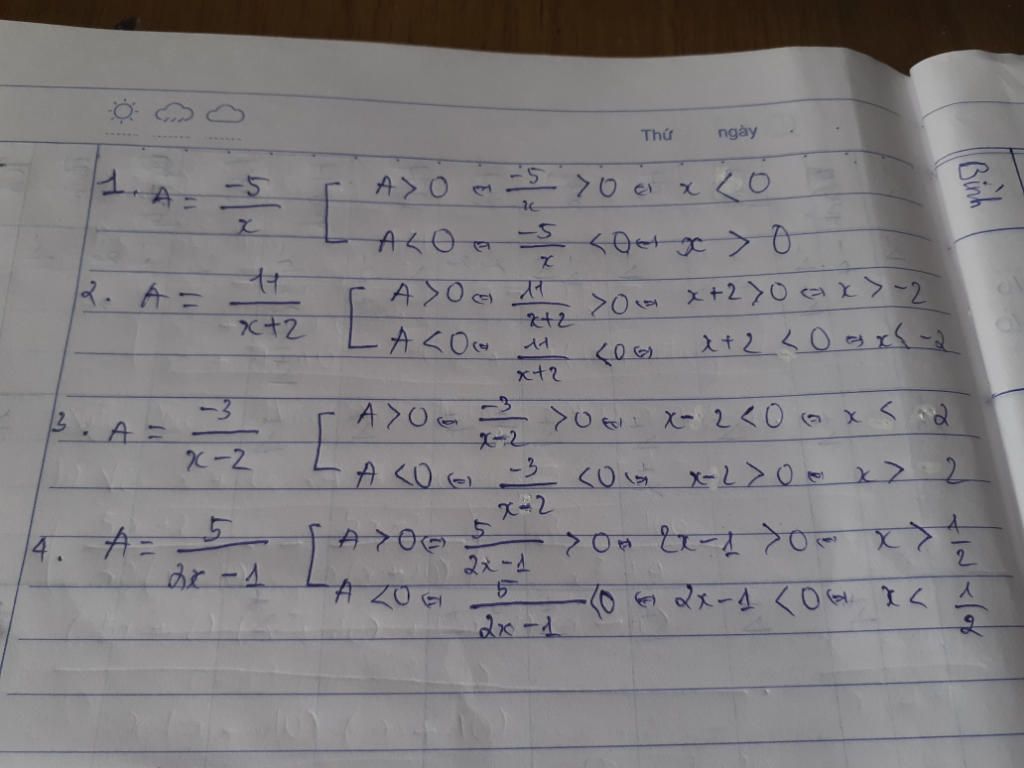 Thứ ngày
Bình
1. A = -5/x [ A > 0 ⇔ -5/x > 0 ⇔ x < 0
A < 0 ⇔ -5/x < 0 ⇔ x > 0
2. A = 11/(x+2) [ A > 0 ⇔ 11/(x+2) > 0 ⇔ x+2 > 0 ⇔ x > -2
A < 0 ⇔ 11/(x+2) < 0 ⇔ x+2 < 0 ⇔ x < -2
3. A = -3/(x-2) [ A > 0 ⇔ -3/(x-2) > 0 ⇔ x-2 < 0 ⇔ x < 2
A < 0 ⇔ -3/(x-2) < 0 ⇔ x-2 > 0 ⇔ x > 2
4. A = 5/(2x-1) [ A > 0 ⇔ 5/(2x-1) > 0 ⇔ 2x-1 > 0 ⇔ x > 1/2
A < 0 ⇔ 5/(2x-1) < 0 ⇔ 2x-1 < 0 ⇔ x < 1/2